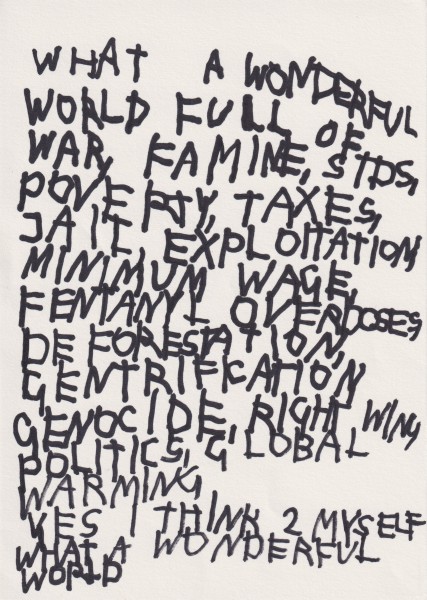 WHAT A WONDERFUL
WORLD FULL OF
WAR, FAMINE, STDS,
POVERTY, TAXES,
JAIL EXPLOITATION
MINIMUM WAGE,
FENTANYL OVERDOSES
DEFORESTATION,
GENTRIFICATION
GENOCIDE, RIGHT WING
POLITICS, GLOBAL
WARMING
YES I THINK 2 MYSELF
WHAT A WONDERFUL
WORLD